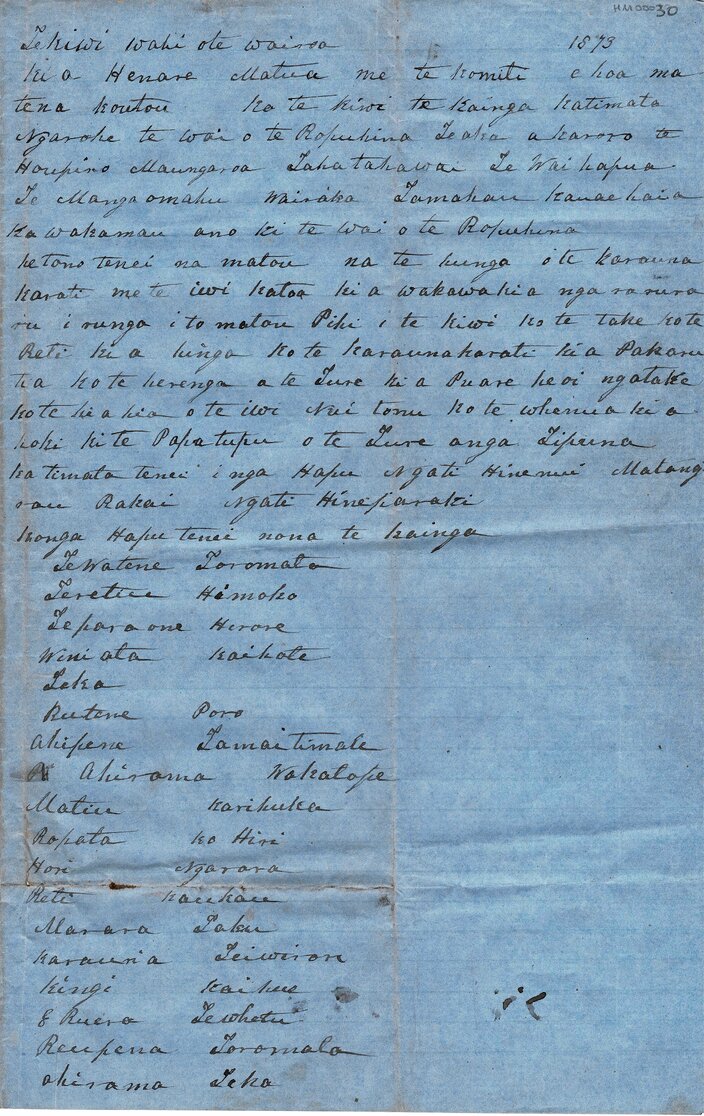 HM00030
Te kiwi wahi ote wairoa 1873
ki a Henare Matua me te komiti e hoa ma
tena koutou ko te kiwi te kainga katimata
Ngarohe te wai o te Ropuhina Te aka a karoro te
Houpiro Maungaroa Takatakawai Te Wai hapua
Te Manga omahu Wairaka Tamakau kauae haia
Ka wakamau ano ki te wai o te Ropuhina
he tono tenei na matou na te hunga i te karauna
karati me te iwi katoa ki a wakawakia nga rarura
ru i runga i to matou Pihi i te kiwi ko te take ko te
Reti ki a hinga ko te karaunakarati ki a Pakaru
tia ko te herenga a te Ture ki a Puare heoi ngatake
ko te hiahia o te iwi Nui tonu ko te whenua ki a
hoki ki te Papatupu o te Ture anga Tipuna
ka timata tenei i nga Hapu Ngati Hinemui Matangi
rau Rakai Ngati Hineparaki
konga Hapu tenei nona te kainga
TeWatene Toromata
Teretiu Himoko
Teparaone Horore
Winiata kaikote
Taka
Rutene Poro
Ahipene Tamaitimate
Ahirama Wakatope
Matiu karihuka
Ropata ko Hiri
Hori Ngarara
Reti kaukau
Marara Taku
karauria Teiwirori
kingi kai hue
E Ruera Tewhetu
Reupena Toromata
ahirama Teka